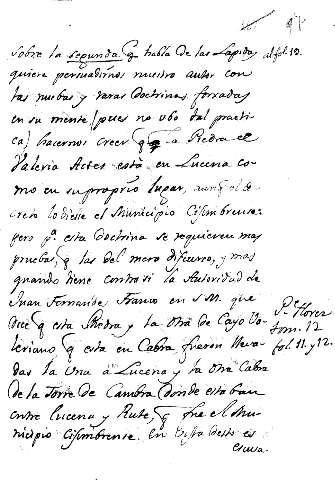 sobre la segunda q habla de las Lapidas al fol. 12.
quiere persuadirnos nuestro autor con
tas nuebas y raras Doctrinas forradas
en su mente (pues no ubo tal practi
ca) hacernos creer q a Piedra el
Valeria Actes está en Lucena co-
mo en su proprio lugar, aunq el de
creto lo diese el Municipio Cisimbrense:
pero pa esta Doctrina se requieren mas
pruebas q las del mero discurso, y mas
quando tiene contra si la Autoridad de
Juan Fernandes Franco en s M. que
dice q esta Piedra y la otra de Cayo Va-
leriano q esta en Cabra fueron lleva-
das la una a Lucena y la otra Cabra
de la Torre de Cambra donde estaban
entre Lucena y Rute, q fue el Mu-
nicipio Cisimbrense. En vista desto es
escusa.
Pe Florez
tom. 12
fol. 11. y 12.